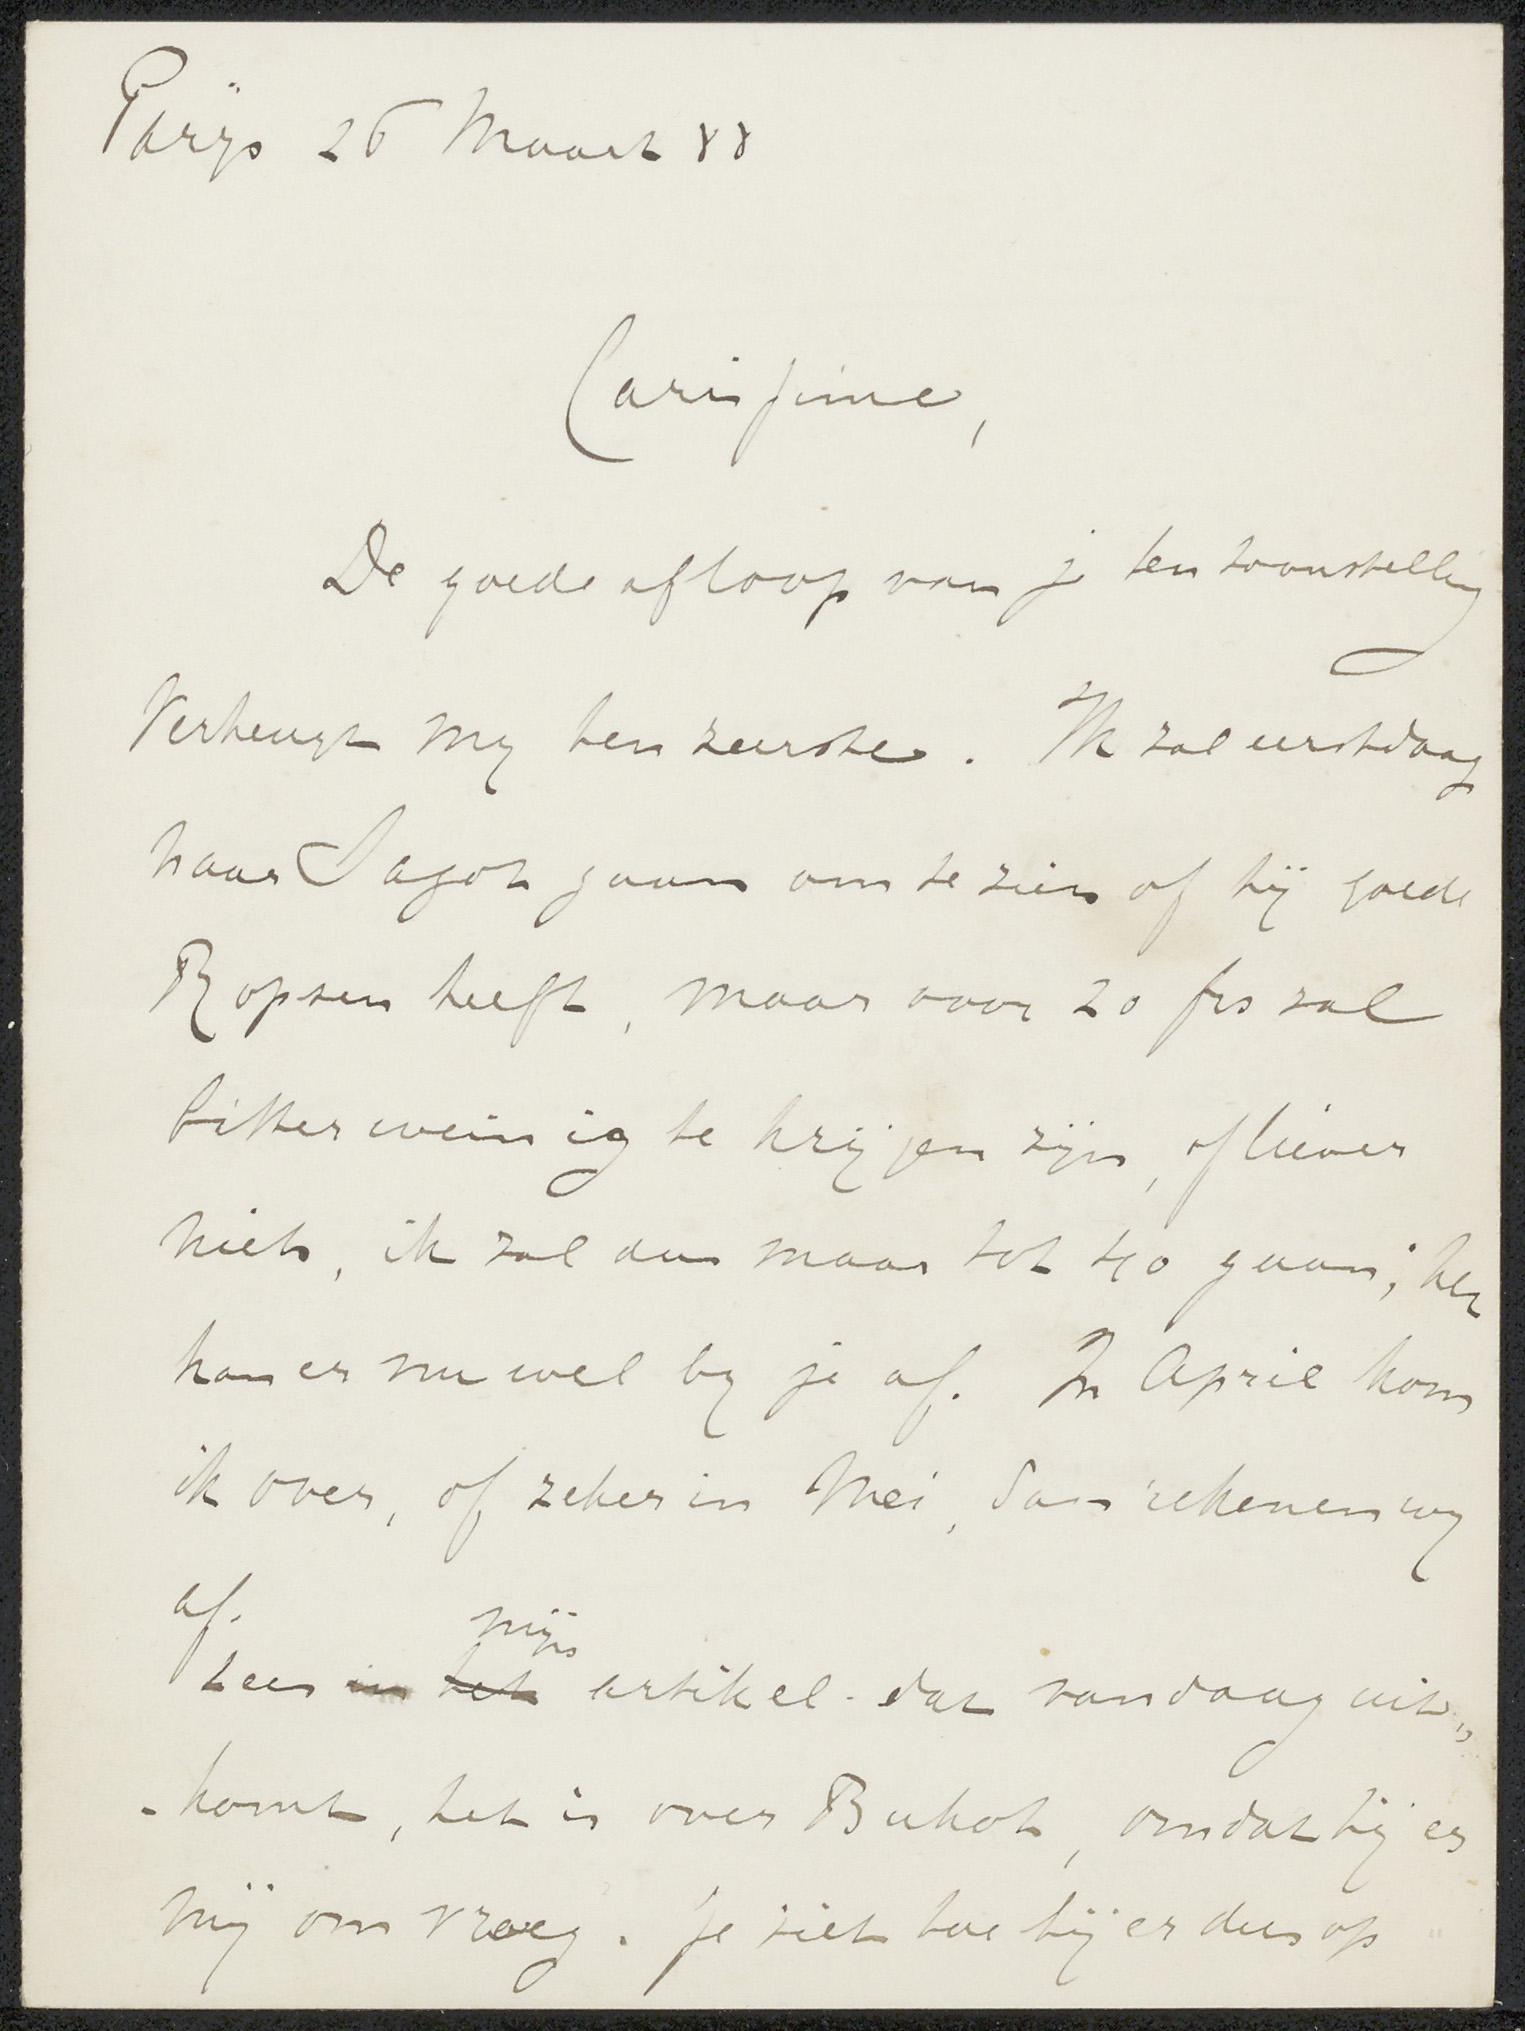 Parijs 26 Maart 88
Carissime,
De goede afloop van je tentoonstelling
verheugt my ten zeerste. Ik zal eerstdaags
naar Sagot gaan om te zien of hij goede
Ropsen heeft, maar voor 20 frs zal
bitter weinig te krijgen zijn, of liever
niets, ik zal dus maar tot 40 gaan; het
kan er nu wel by je af. In April kom
ik over, of zeker in Mei, dan rekenen wy
af.
mijn
Lees in het artikel dat vandaag uit„
-komt, het is over Buhot, omdat hij er
mij om vroeg. Je ziet hoe hij er dus op